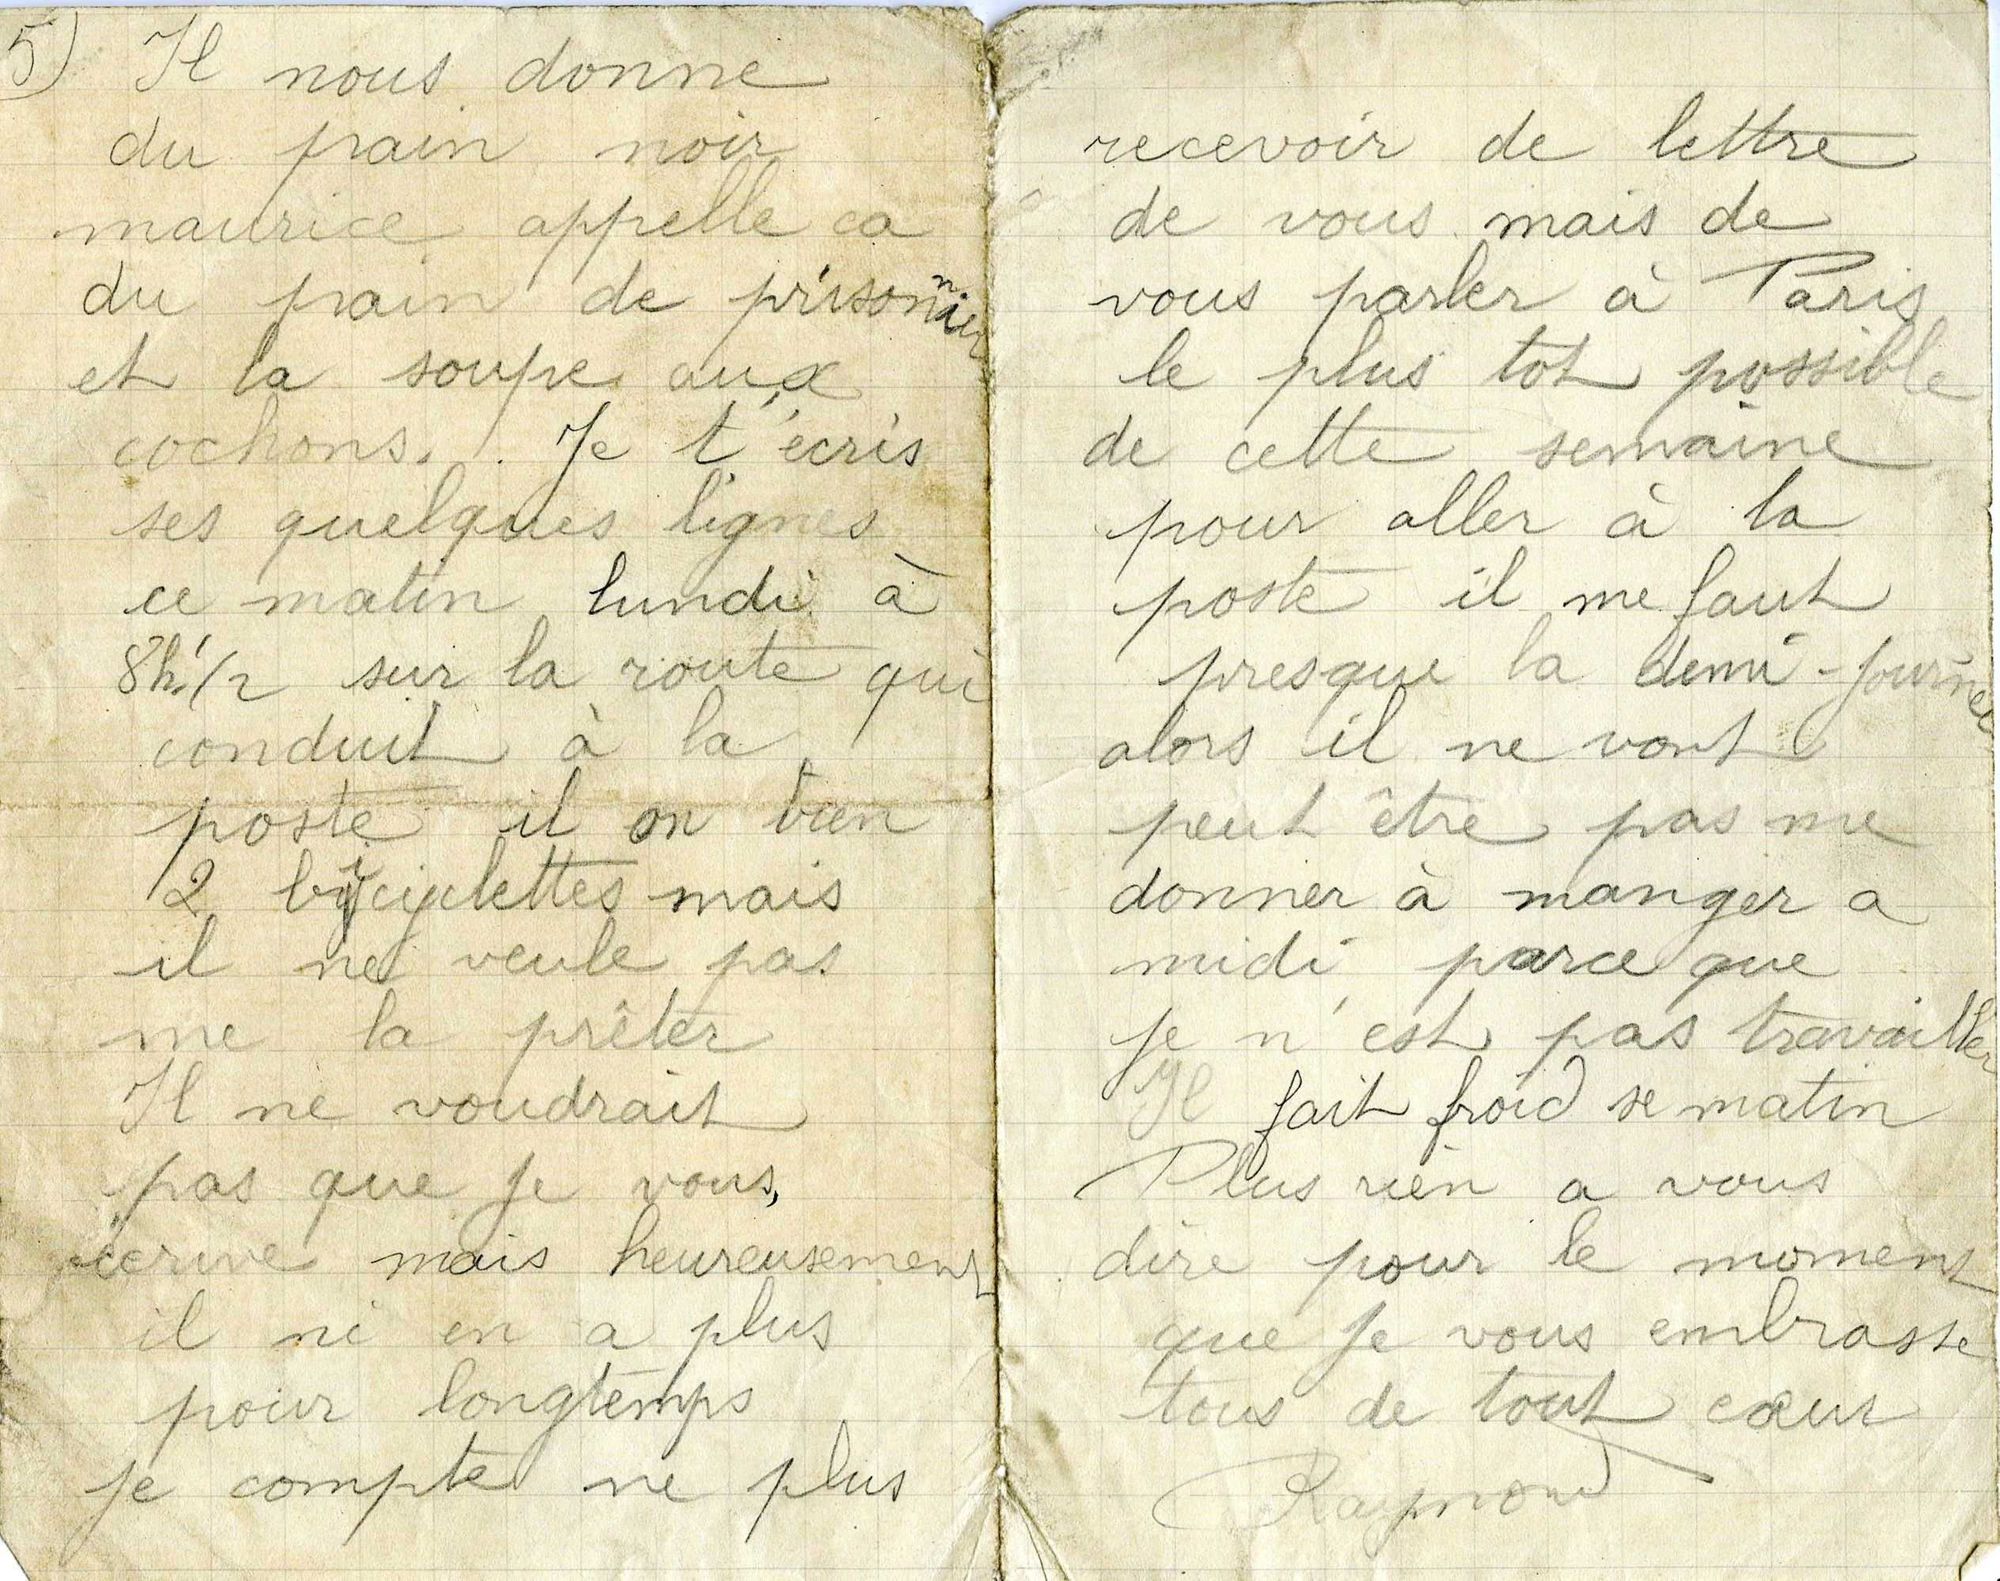 5) Il nous donne
du pain noir
maurice appelle ca
du pain de prisonnier
et la soupe aux
cochons. Je t'écris
ses quelques lignes
ce matin lundi à
8h1/2 sur la route qui
conduit à la
poste il on bien
2 bicyclettes mais
il ne veule pas
me la prêter
Il ne voudrait
pas que je vous,
écrive mais heureusement
il ni en a plus
pour longtemps
je compte ne plus
recevoir de lettre
de vous mais de
vous parler à Paris
le plus tot possible
de cette semaine
pour aller à la
poste il me faut
presque la demi-journée
alors il ne vont
peut être pas me
donner à manger a
midi parce que
je n'est pas travailler
Il fait froid se matin
Plus rien a vous
dire pour le moment
que je vous embrasse
tous de tout cœur
Raymond